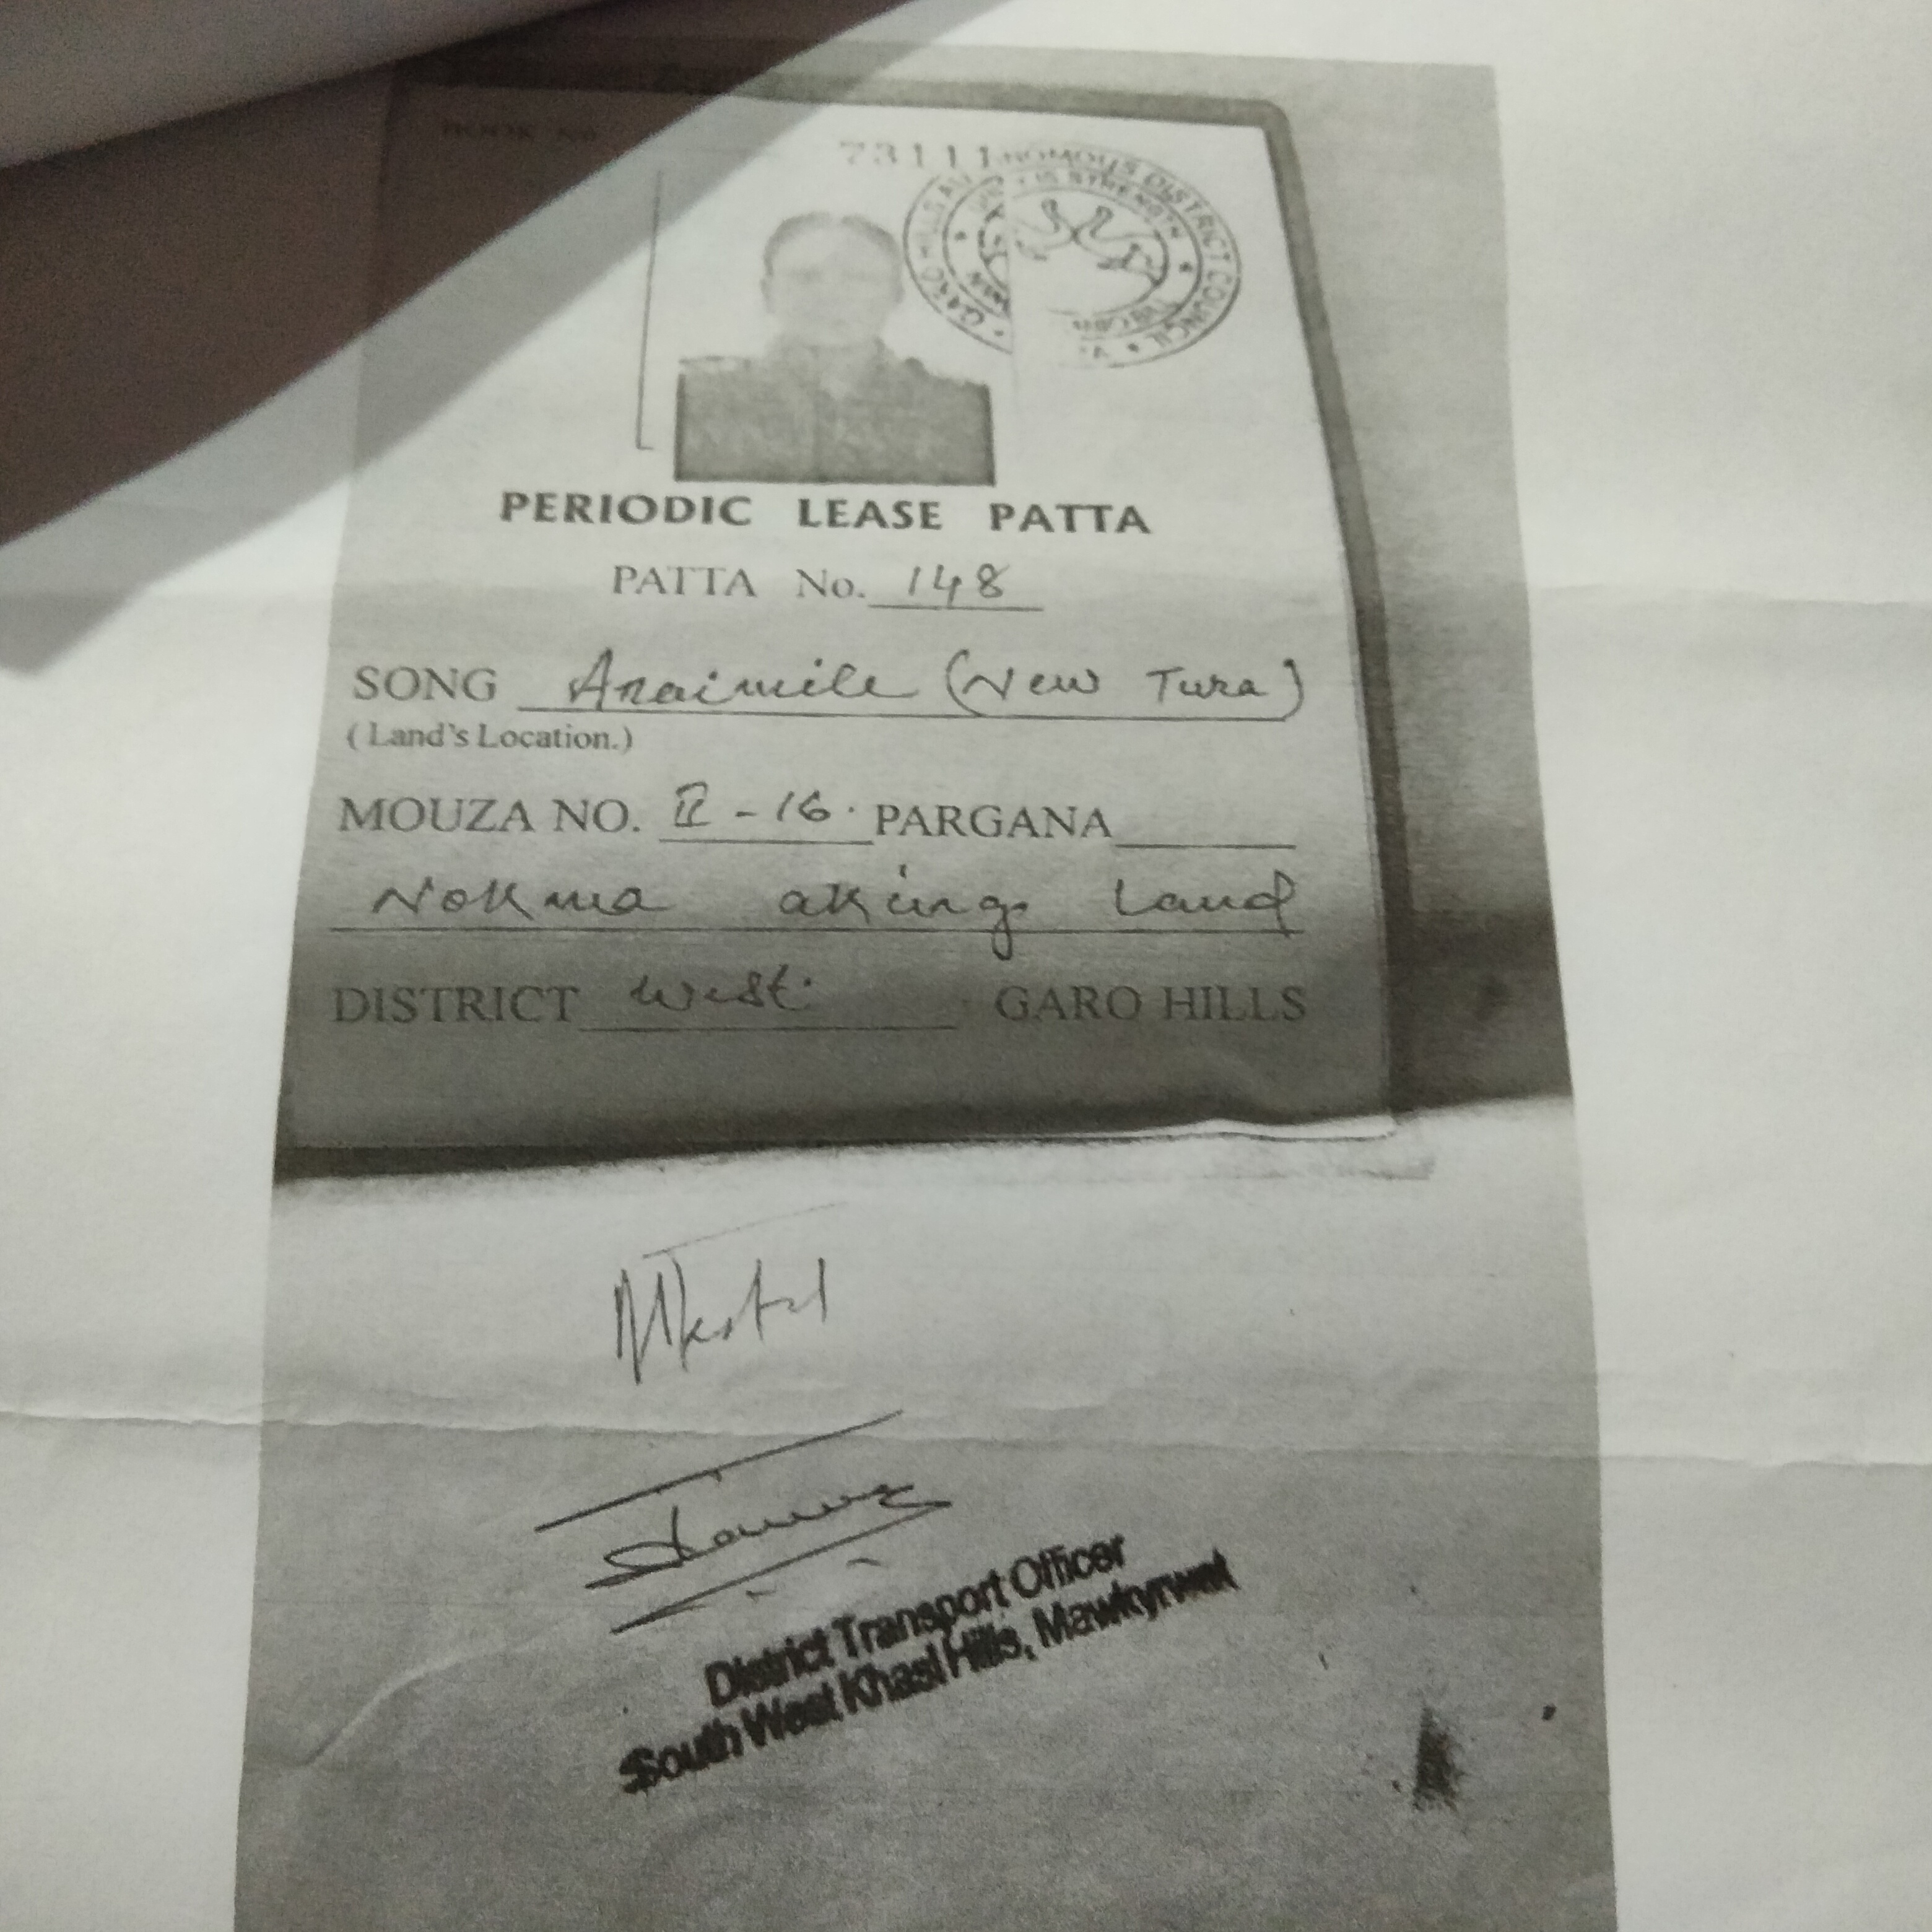 BOOK No.
73111
GARO HILLS AUTONOMOUS DISTRICT COUNCIL
IS STRENGTH
PERIODIC LEASE PATTA
PATTA No. 148
SONG Araimile (New Tura)
(Land's Location.)
MOUZA NO. II - 16. PARGANA
Nokma aking Land
DISTRICT West. GARO HILLS
District Transport Officer
South West Khasi Hills, Mawkyrwat